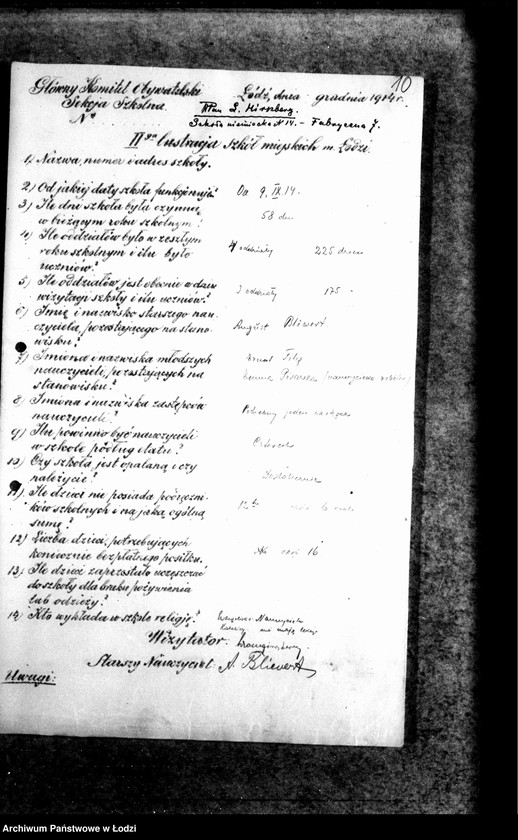 10
Główny Komitet Obywatelski
Sekcja Szkolna.
Nº
Łódź, dnia grudnia 1914 r.
Pan S. Hirszberg.
Szkoła niemiecka N 14. – Fabryczna 7.
II ga lustracja Szkół miejskich m. Łodzi.
1) Nazwa, numer i adres szkoły.
2) Od jakiej daty szkoła funkcjonuje? Od 9. IX. 14.
3) Ile dni szkoła była czynną
w bieżącym roku szkolnym? 58 dni
4) Ile oddziałów było w zeszłym
roku szkolnym i ilu było
uczniów? 4 oddziały 225 dzieci
5) Ile oddziałów jest obecnie w dniu
wizytacji szkoły i ilu uczniów? 3 oddziały 175
6) Imię i nazwisko starszego nau-
czyciela, pozostającego na stano-
wisku? August Bliewert
7) Imiona i nazwiska młodszych
nauczycieli, pozostających na
stanowisku? Filip
8) Imiona i nazwiska zastępców
nauczycieli? jeden
9) Ilu powinno być nauczycieli
w szkole podług etatu? Czterech
10) Czy szkoła jest opalaną i czy
należycie?
11) Ile dzieci nie posiada podręczni-
ków szkolnych i na jaką ogólną
sumę?
12) Liczba dzieci, potrzebujących
koniecznie bezpłatnego posiłku. 16
13) Ile dzieci zaprzestało uczęszczać
do szkoły dla braku pożywienia
lub odzieży?
14) Kto wykłada w szkole religię?
nie mają
Wizytator:
Starszy Nauczyciel A. Bliewert
Uwagi:
Archiwum Państwowe w Łodzi